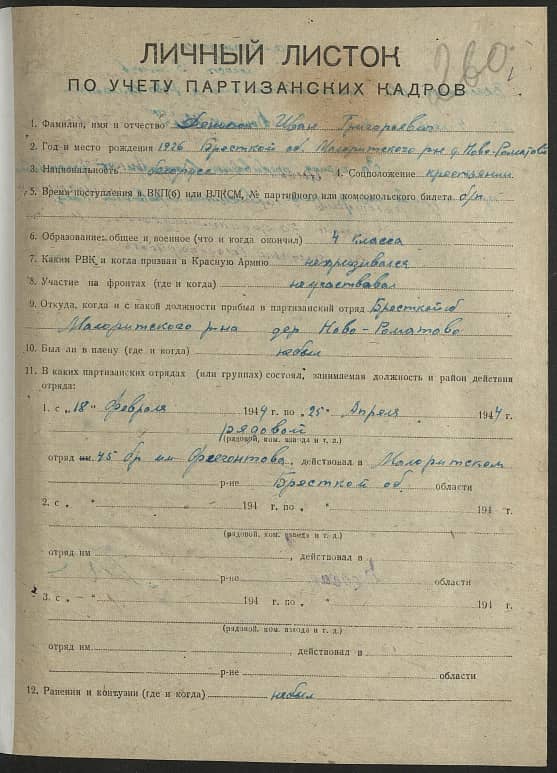 ЛИЧНЫЙ ЛИСТОК
ПО УЧЕТУ ПАРТИЗАНСКИХ КАДРОВ
260
1. Фамилия, имя и отчество Иван Григорьевич
2. Год и место рождения 1926 Бресткой об. Малоритского р-на д. Ново-Роматово
3. Национальность белорусс 4. Соцположение крестьянин
5. Время поступления в ВКП(б) или ВЛКСМ, № партийного или комсомольского билета б/п
6. Образование: общее и военное (что и когда окончил) 4 класса
7. Каким РВК и когда призван в Красную Армию непризывался
8. Участие на фронтах (где и когда) неучаствовал
9. Откуда, когда и с какой должности прибыл в партизанский отряд Бресткой об
Малоритского р-на дер Ново-Роматово
10. Был ли в плену (где и когда) небыл
11. В каких партизанских отрядах (или группах) состоял, занимаемая должность и район действия
отряда:
1. с „18“ Февраля 1944 г. по „25“ Апреля 1944 г.
рядовой
(рядовой, ком. взвода и т. д.)
отряд им 45 бр им Флегонтова, действовал в Малоритском
р-не Бресткой об. области
2. с „ “ 194 г. по „ “ 194 г.
(рядовой, ком. взвода и т. д.)
отряд им , действовал в
р-не области
3. с „ “ 194 г. по „ “ 194 г.
(рядовой, ком. взвода и т. д.)
отряд им , действовал в
р-не области
12. Ранения и контузии (где и когда) небыл